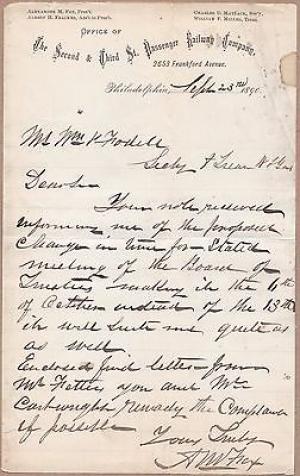 ALEXANDER M. FOX, Pres't.
CHARLES D. MATLACK, Sec'y.
ALBERT H. FRACKER, Ass't to Pres't.
WILLIAM F. MILLER, Treas.
OFFICE OF
The Second & Third St. Passenger Railway Company,
2653 Frankford Avenue.
Philadelphia, Sept 23rd 1890.
Mr Wm
Secty & Treas
Dear Sir
Your note received
informing me of the proposed
Change in time for Stated
meeting of the Board of
Trustees making it the 6th
of October instead of the 13th
it will suit me quite as
as well
Enclosed find letter from
Mr you and Mr
Cartwright remedy the Complaint
if possible
Yours Truly
A M Fox